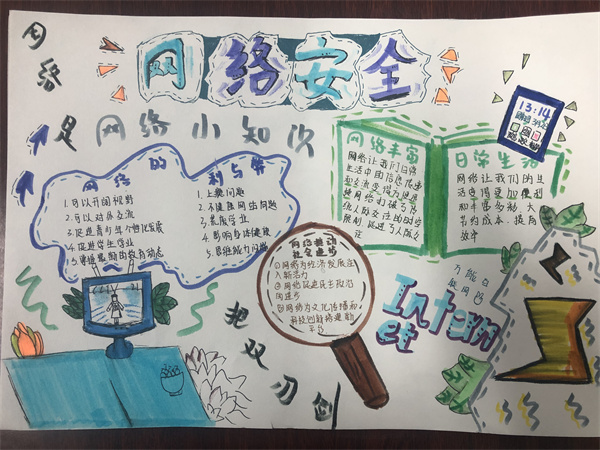 网络安全
网络
是
把双刃剑
网络小知识
网络的
利与弊
1.可以开阔视野
2.可以对外交流
3.促进青少年个性化发展
4.促进学生学业
1.上瘾问题
2.不健康网络问题
3.荒废学业
4.影响身体健康
网络推动
社会进步
①网络为经济发展注
入新活力
②网络促进民主政治
的进步
③网络为文化传播和
科技创新搭建新
平台
网络丰富
网络让我们日常
生活中的信息传递
和交流变得方便迅速
日常生活
网络让我们的生
活变得更加便利
和丰富多彩,大
节约成本,提高
效率
13:14
Internet